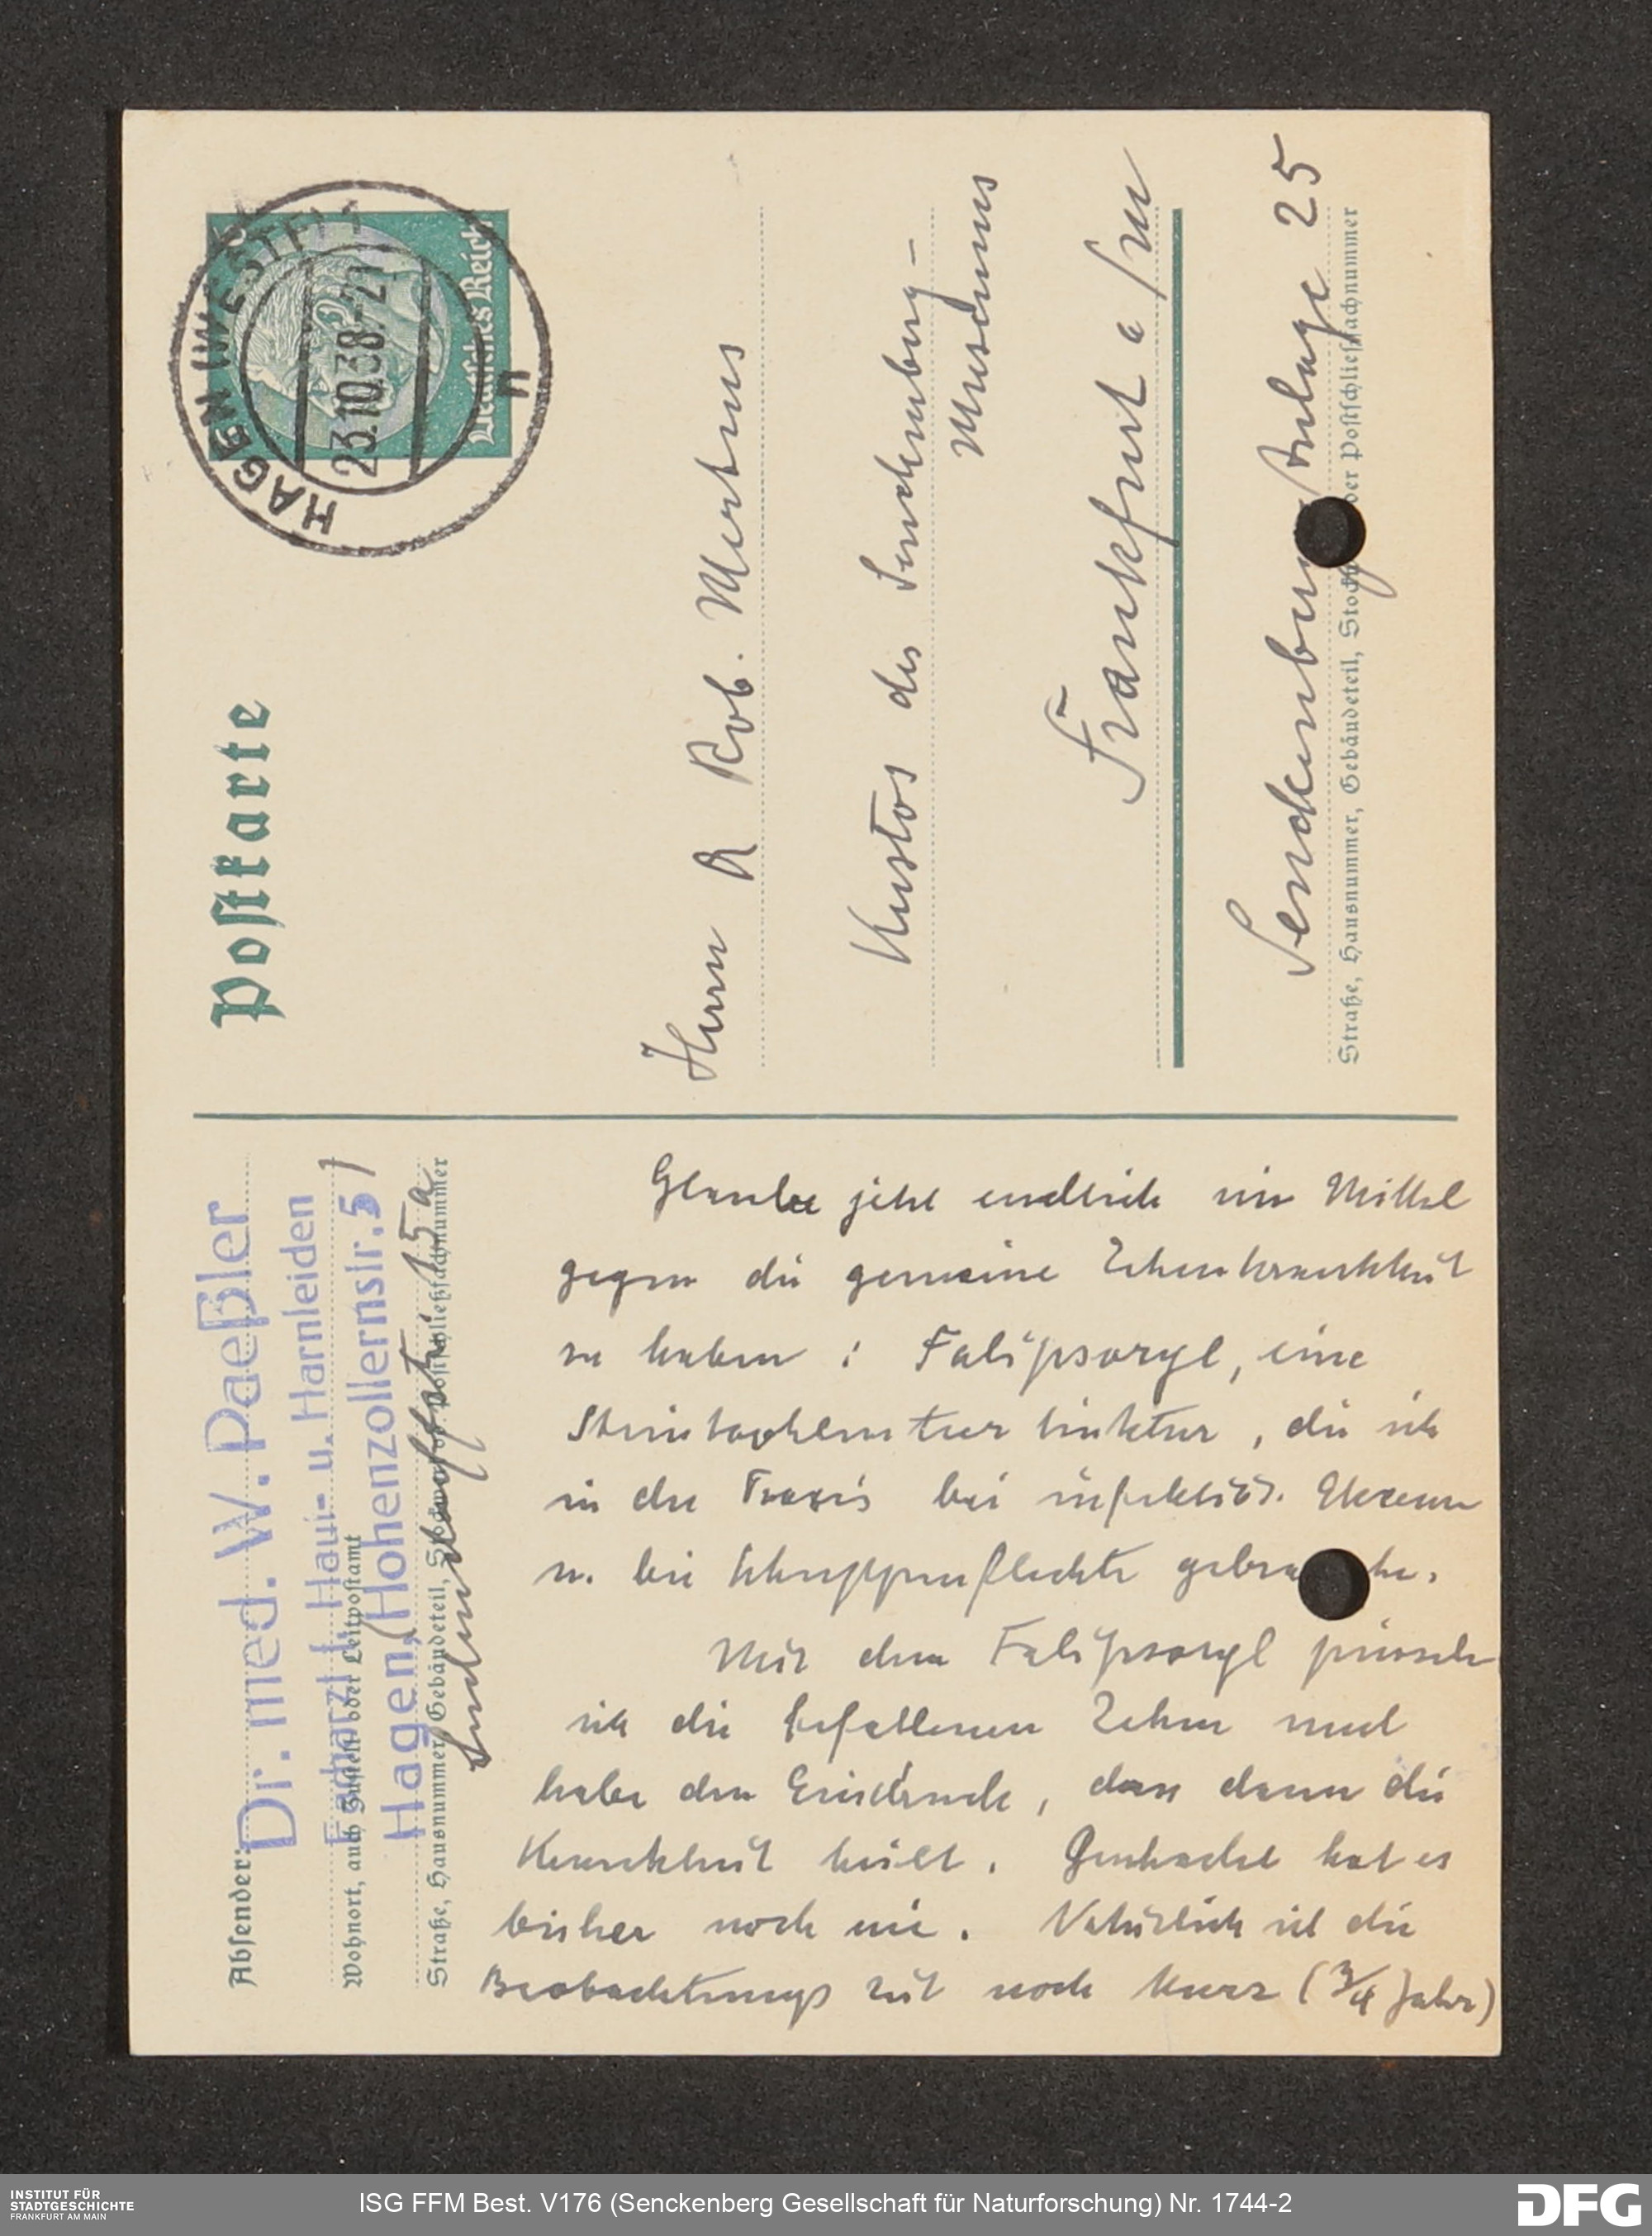 Postkarte
HAGEN (WESTF) 1
23.10.38.-21
n
Deutsches Reich
6
Herrn Dr Rob. Mertens
Kustos des Senckenberg-
Museums
Frankfurt a/M
Senckenberg Anlage 25
Straße, Hausnummer, Gebäudeteil, Stockwerk oder Postschließfachnummer
Absender:
Dr. med. W. Paeßler
Facharzt f. Haut- u. Harnleiden
Wohnort, auch Zustell- oder Leitpostamt
Hagen, Hohenzollernstr. 5
15a
Straße, Hausnummer, Gebäudeteil, Stockwerk od. Postschließfachnummer
Glaube jetzt endlich ein Mittel
gegen die gemeine Zehenkrankheit
zu haben: Falipsoryl, eine
Steinkohlenteertinktur, die ich
in der Praxis bei infektiös. Ekzemen
u. bei Schuppenflechte gebrauche.
Mit dem Falipsoryl pinsele
ich die befallenen Zehen und
habe den Eindruck, dass dann die
Krankheit heilt. Geschadet hat es
bisher noch nie. Natürlich ist die
Beobachtungszeit noch kurz (3/4 Jahr)
INSTITUT FÜR
STADTGESCHICHTE
FRANKFURT AM MAIN
ISG FFM Best. V176 (Senckenberg Gesellschaft für Naturforschung) Nr. 1744-2
DFG